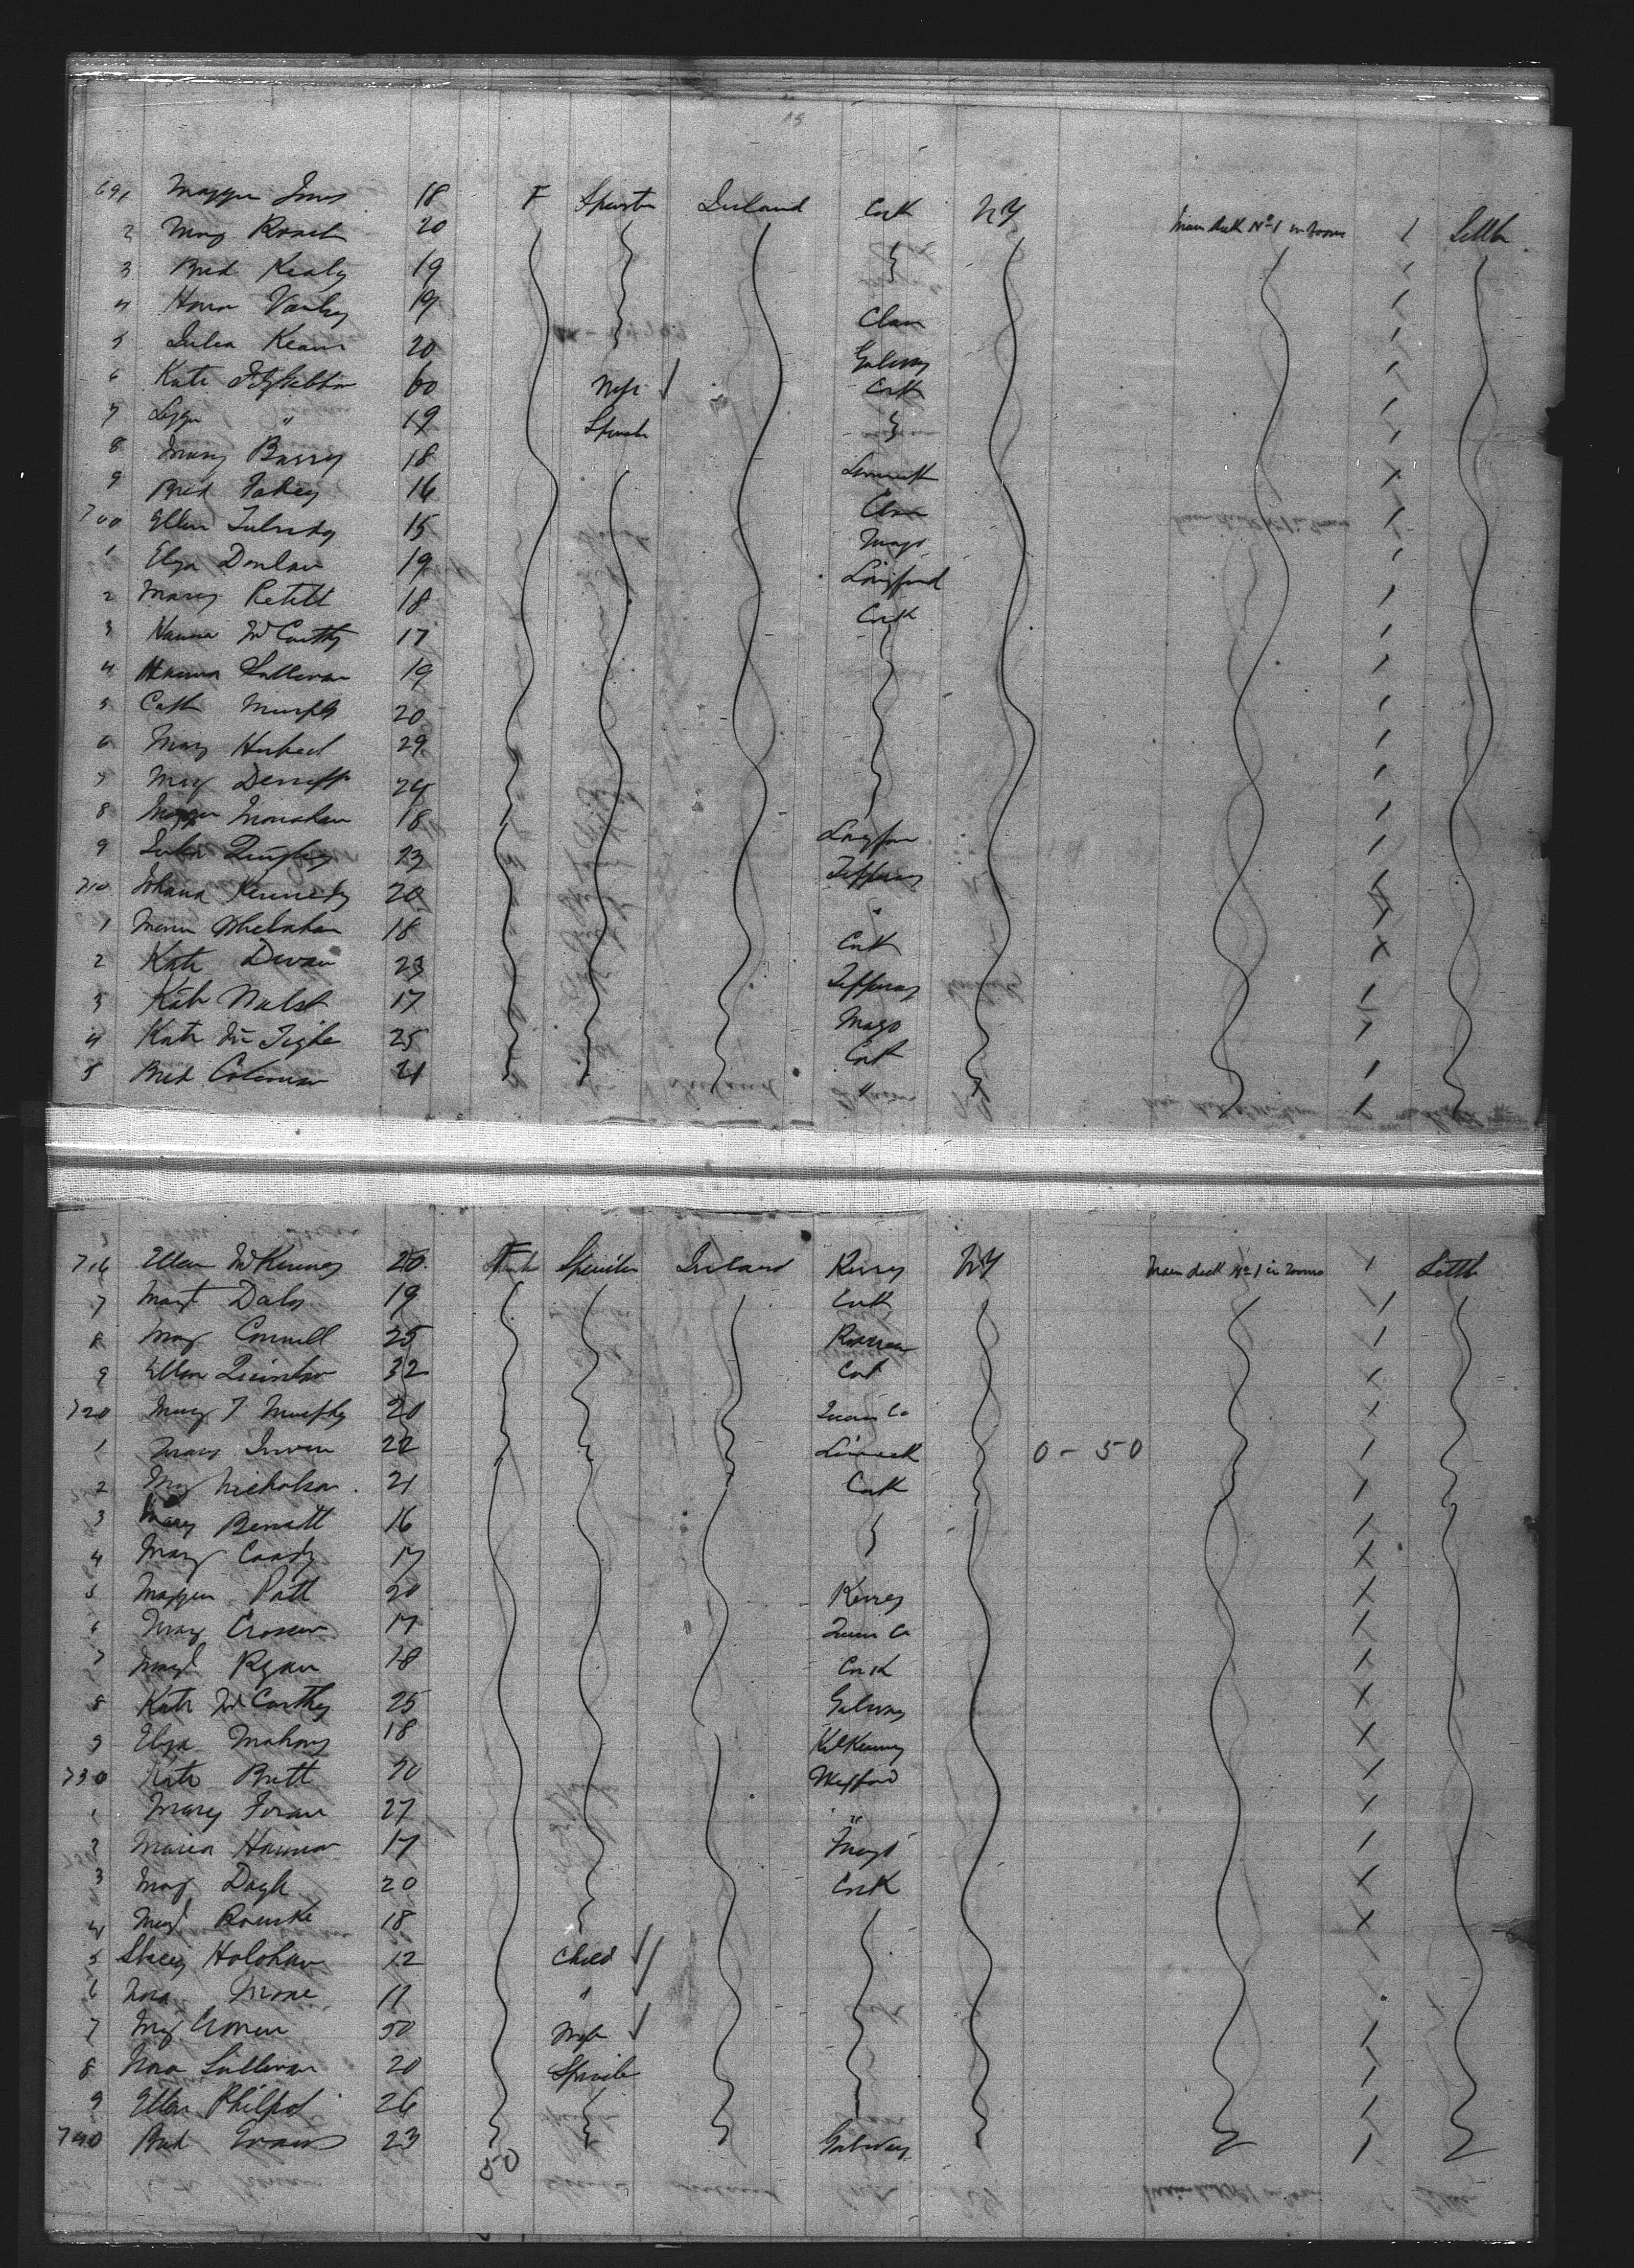 691 Maggie 18 F Spinster Ireland Cork NY Main deck No 1 in rooms 1 Settler
2 Mary Roach 20
3 Brid Kealy 19
4 Hora 19 Clare
5 Julia Keane 20 Galway
6 Kate Fitzgibbon 60 Wife Cork
7 Lizzie " 19 Spinster
8 Mary Barry 18 Limerick
9 Brid Fahey 16 Clare
700 Ellen Tulnedy 15 Mayo
1 Eliza Donlan 19 Longford
2 Mary Petitt 18 Cork
3 Hanna McCarthy 17
4 Hanna Sullivan 19
5 Cath Murphy 20
6 Mary Herbert 29
7 Mary 24
8 Maggie Monahan 18 Longford
9 Julia Quigley 23 Tipperary
710 Johana Kennedy 20 "
1 Whelahan 18 Cork
2 Kate Divan 23 Tipperary
3 Kate Walsh 17 Mayo
4 Kate McTighe 25 Cork
5 Brid Coleman 21 "
716 Ellen McKenney 20 F Spinster Ireland Kerry NY Main deck No 1 in rooms 1 Settler
7 Margt Daly 19 Cork
8 Mary Connell 25
9 Ellen Quinlan 32 Cork
720 Mary T Murphy 20 Queens Co
1 Mary Irwin 22 Limerick 0 - 50
2 Mary Nicholson 21 Cork
3 Mary Bennett 16
4 Mary Coady 17
5 Maggie Patt 20 Kerry
6 Mary 17 Queens Co
7 Margt Ryan 18 Cork
8 Kate McCarthy 25 Galway
9 Eliza Mahony 18 Kilkenny
730 Kate Brett 20 Wexford
1 Mary Foran 27 "
2 Maria Hannon 17 Mayo
3 Mary 20 Cork
4 Margt Rourke 18
5 Holohan 12 Child
6 Nora 11 "
7 Mary Cronen 50 Wife
8 Nora Sullivan 20 Spinster
9 Ellen Philpot 26
740 Brid Evans 23 Galway
50